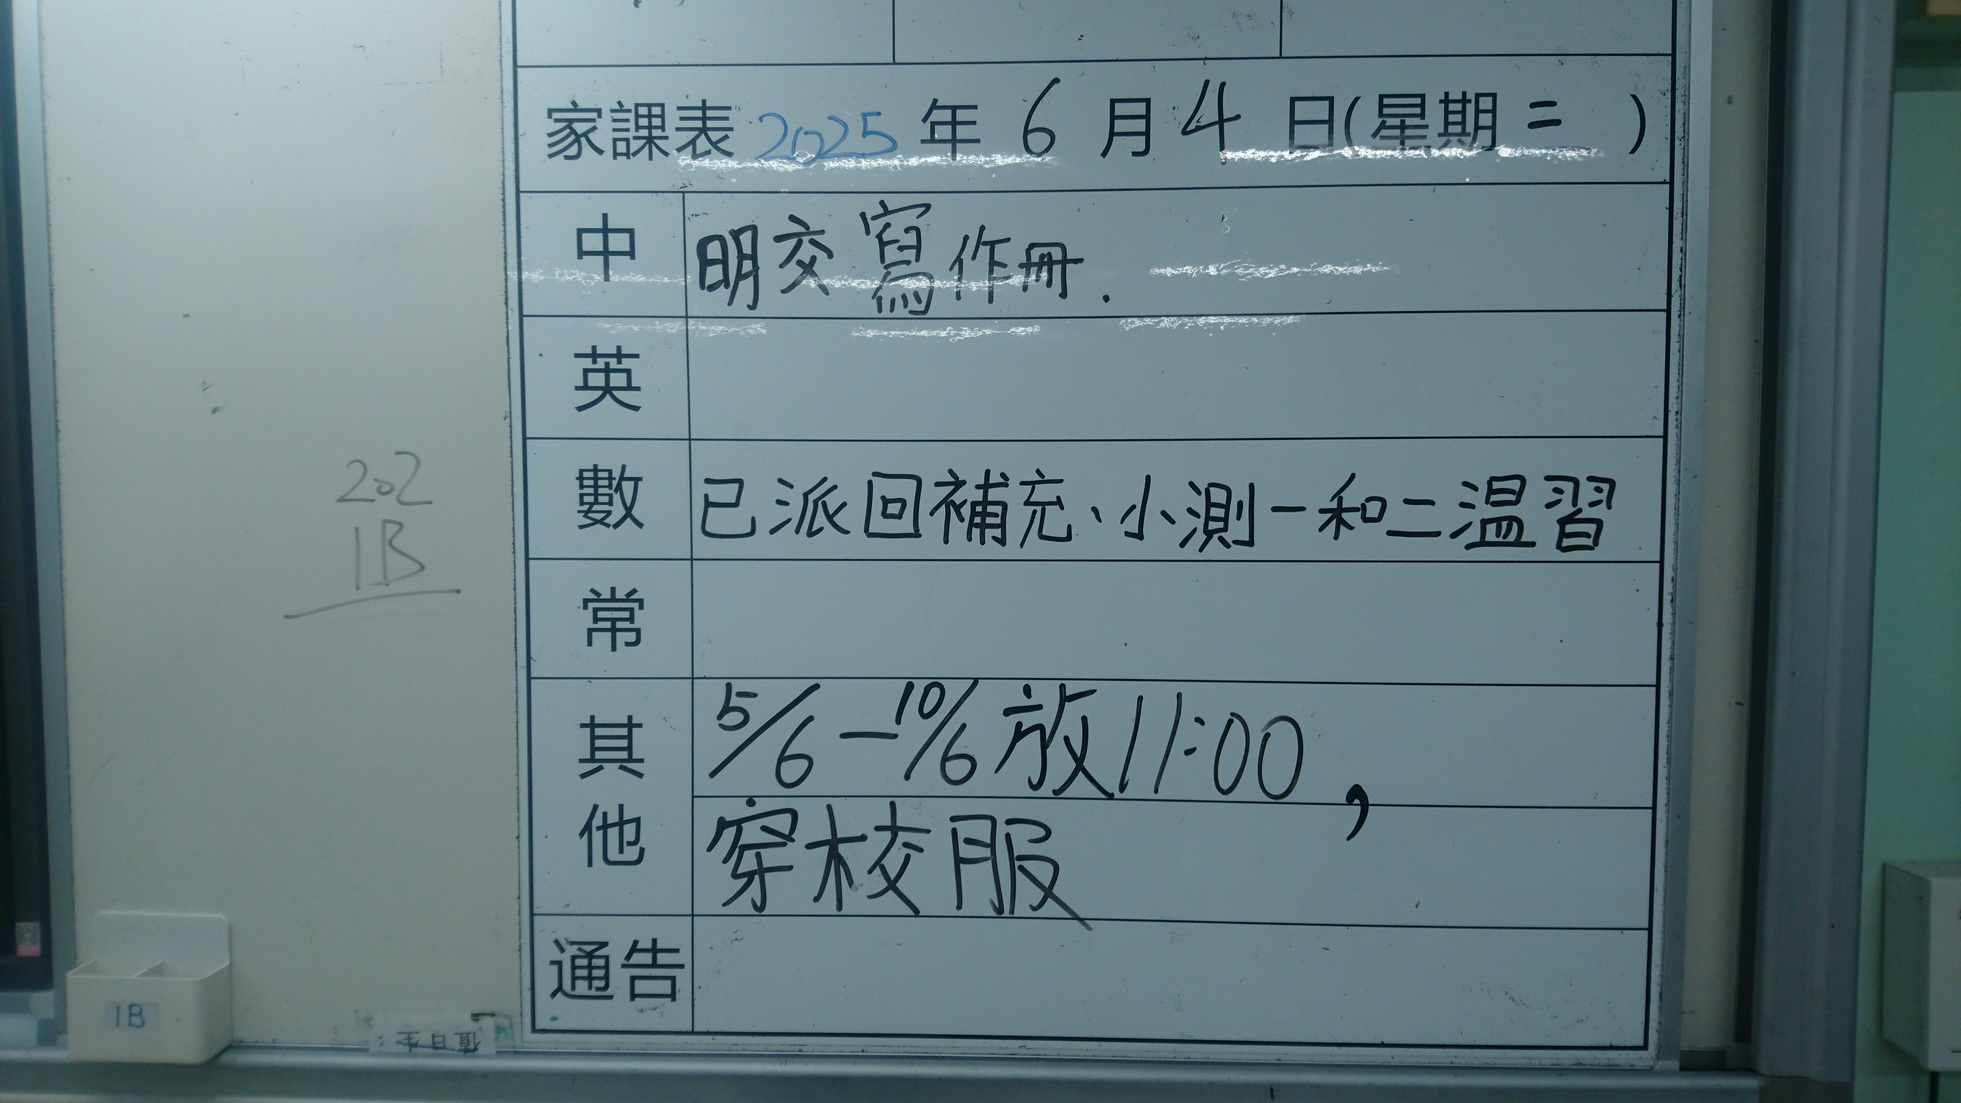 家課表 2025 年 6 月 4 日(星期 二 )
中 明交寫作冊.
英
數 已派回補充、小測一和二溫習
常
其他 5/6—10/6 放11:00,
穿校服
通告
202
1B
1B
值日生: